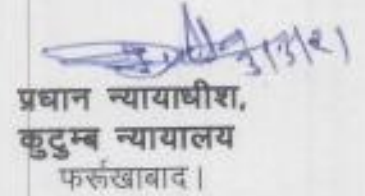 3/3/21
प्रधान न्यायाधीश,
कुटुम्ब न्यायालय
फर्रूखाबाद।